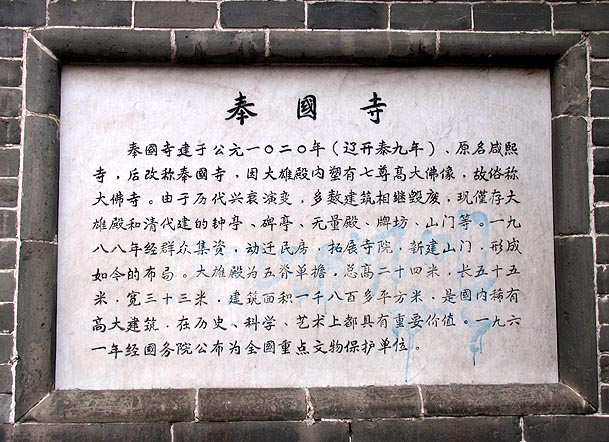 奉國寺
奉國寺建于公元一0二0年（辽开泰九年）、原名咸熙
寺，后改称奉國寺，因大雄殿内塑有七尊高大佛像，故俗称
大佛寺。由于历代兴衰演变，多数建筑相继毁废，现僅存大
雄殿和清代建的钟亭、碑亭、无量殿、牌坊、山门等。一九
八八年经群众集资，动迁民房，拓展寺院，新建山门，形成
如今的布局。大雄殿为五脊单擔，总高二十四米，长五十五
米．宽三十三米．建筑面积一千八百多平方米．是國内稀有
高大建筑．在历史、科学、艺术上都具有重要价值。一九六
一年经國务院公布为全國重点文物保护单位。